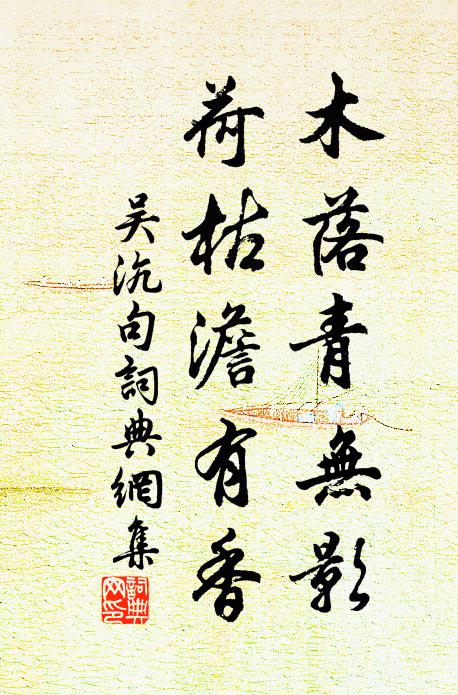 木落青無影
荷枯澹有香
吳沆句詞典網集
詞典
网印